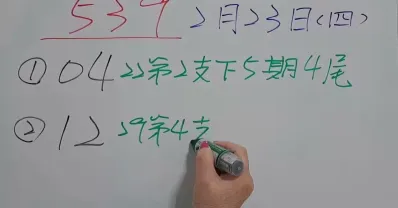 539 2月23日(四)
① 04 22第2支下5期4尾
② 12 29第4支